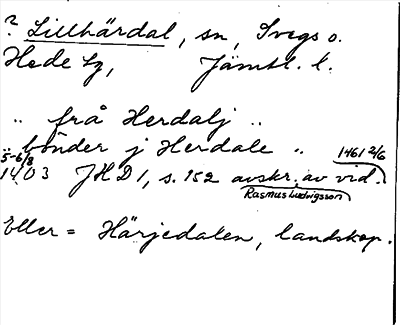 ? Lillhärdal, sn, Svegs o.
Hede tg, Jämtl. l.
.. frå Herdalj ..
.. bönder j Herdale ..
5-6/8 1461 2/6
1403 JHD 1, s. 152 avskr. av vid.
Rasmus Ludvigsson
Eller = Härjedalen, landskap.